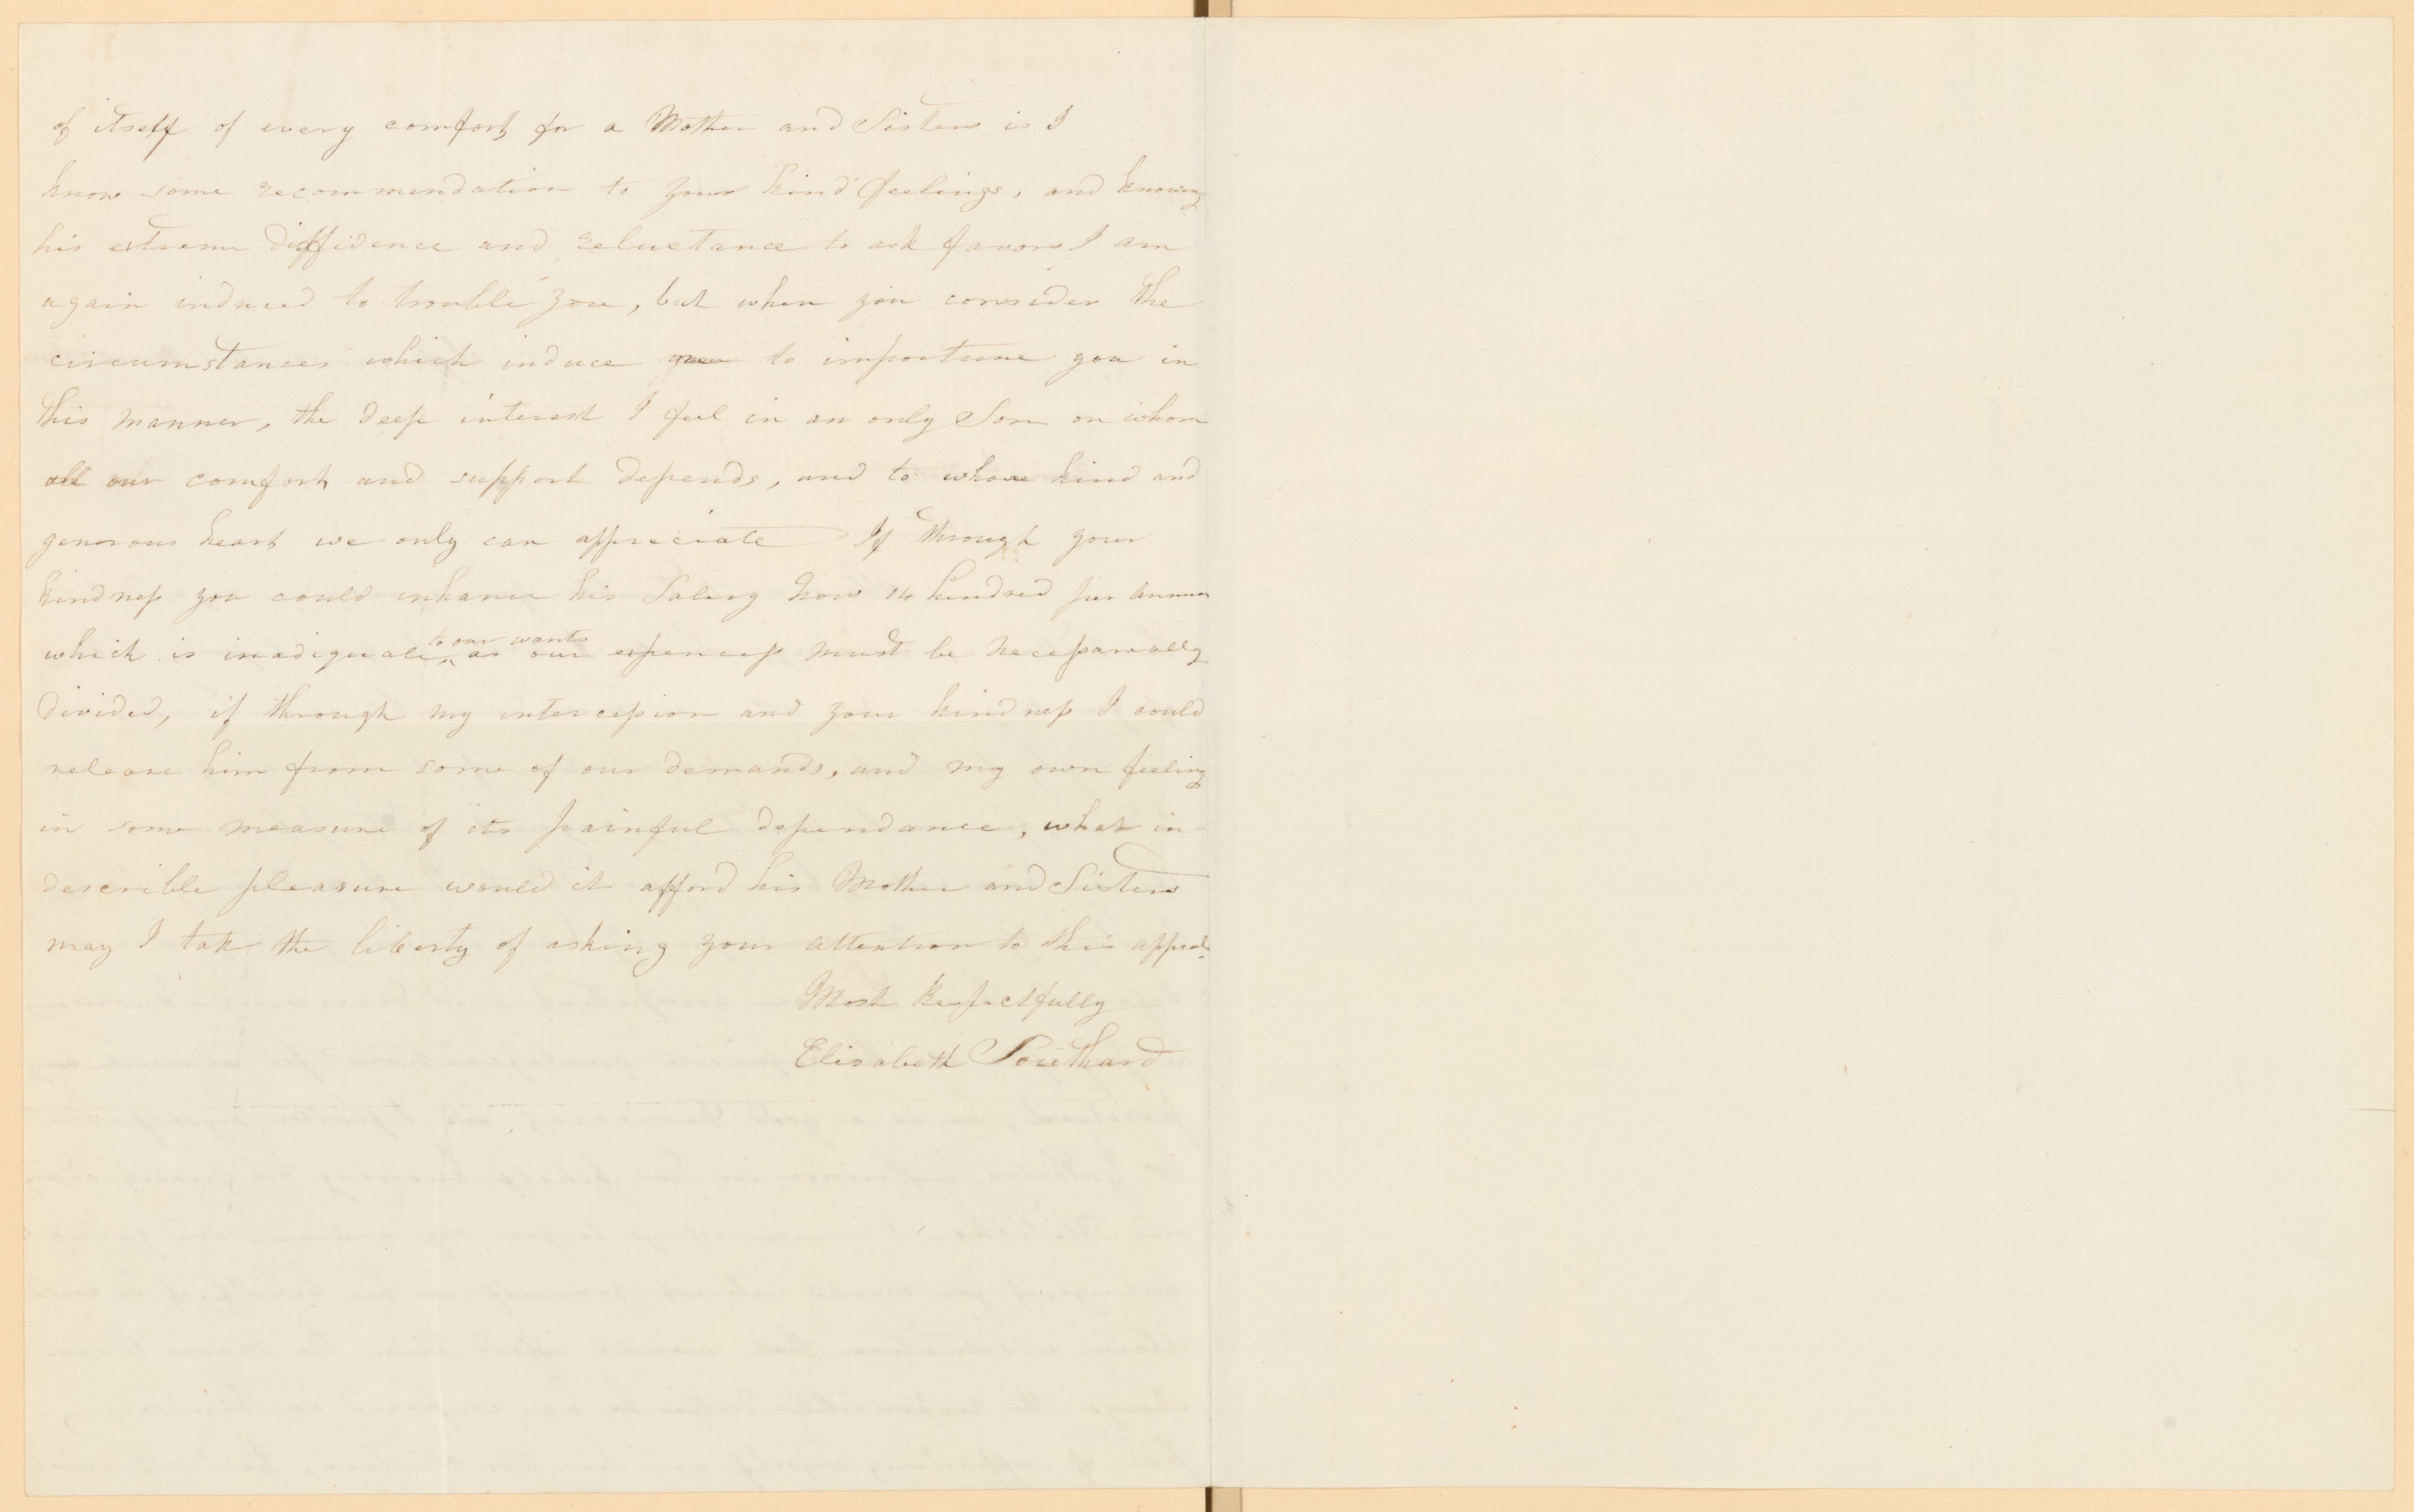 of itself of every comfort for a Mother and Sisters is I
know some recommendation to your kind feelings, and knowing
his extreme diffidence and reluctance to ask favors I am
again induced to trouble you, but when you consider the
circumstances which induce me to importune you in
this manner, the deep interest I feel in an only Son on whom
all our comfort and support depends, and to whose kind and
generous heart we only can appreciate If through your
kindness you could inhance his Salery now 14 hundred per annum
which is inadequate to our wants as our expencess must be necessarally
divided, if through my intercession and your kindness I could
release him from some of our demands, and my own feeling
in some measure of its painful dependance, what in-
describle pleasure would it afford his Mother and Sisters
may I take the liberty of asking your attention to this appeal.
Most Respectfully
Elizabeth Southard